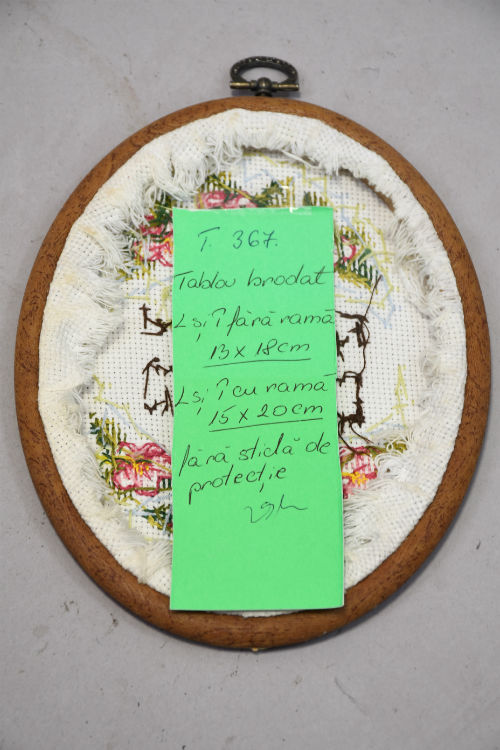 T. 367.
Tablou brodat
L și Î fără ramă
13 x 18 cm
L și Î cu ramă
15 x 20 cm
fără sticlă de
protecție